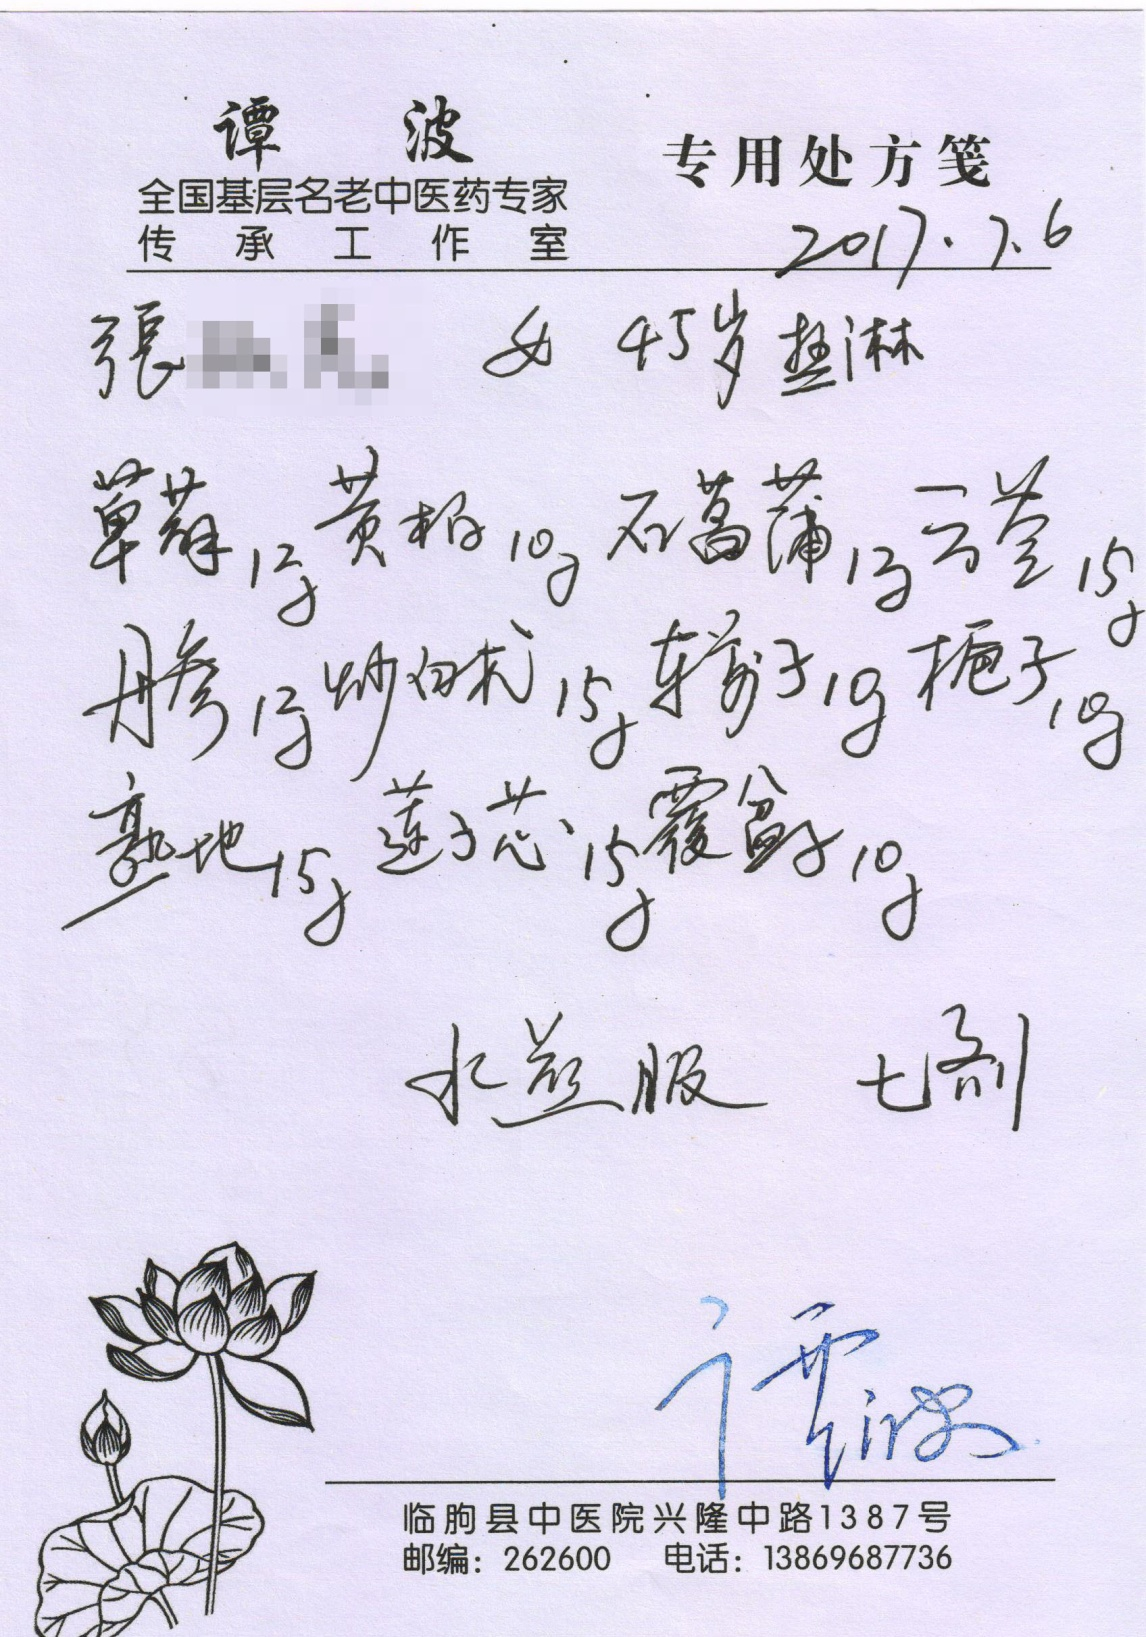 谭 波
专用处方笺
全国基层名老中医药专家
传承工作室
2017.7.6
張 女 45岁 热淋
萆薢12g 黄柏10g 石菖蒲12g 云苓15g
丹参12g 炒白术15g 车前子10g 栀子10g
熟地15g 莲子芯15g 覆盆子10g
水煎服 七剂
谭波
临朐县中医院兴隆中路1387号
邮编：262600 电话：13869687736